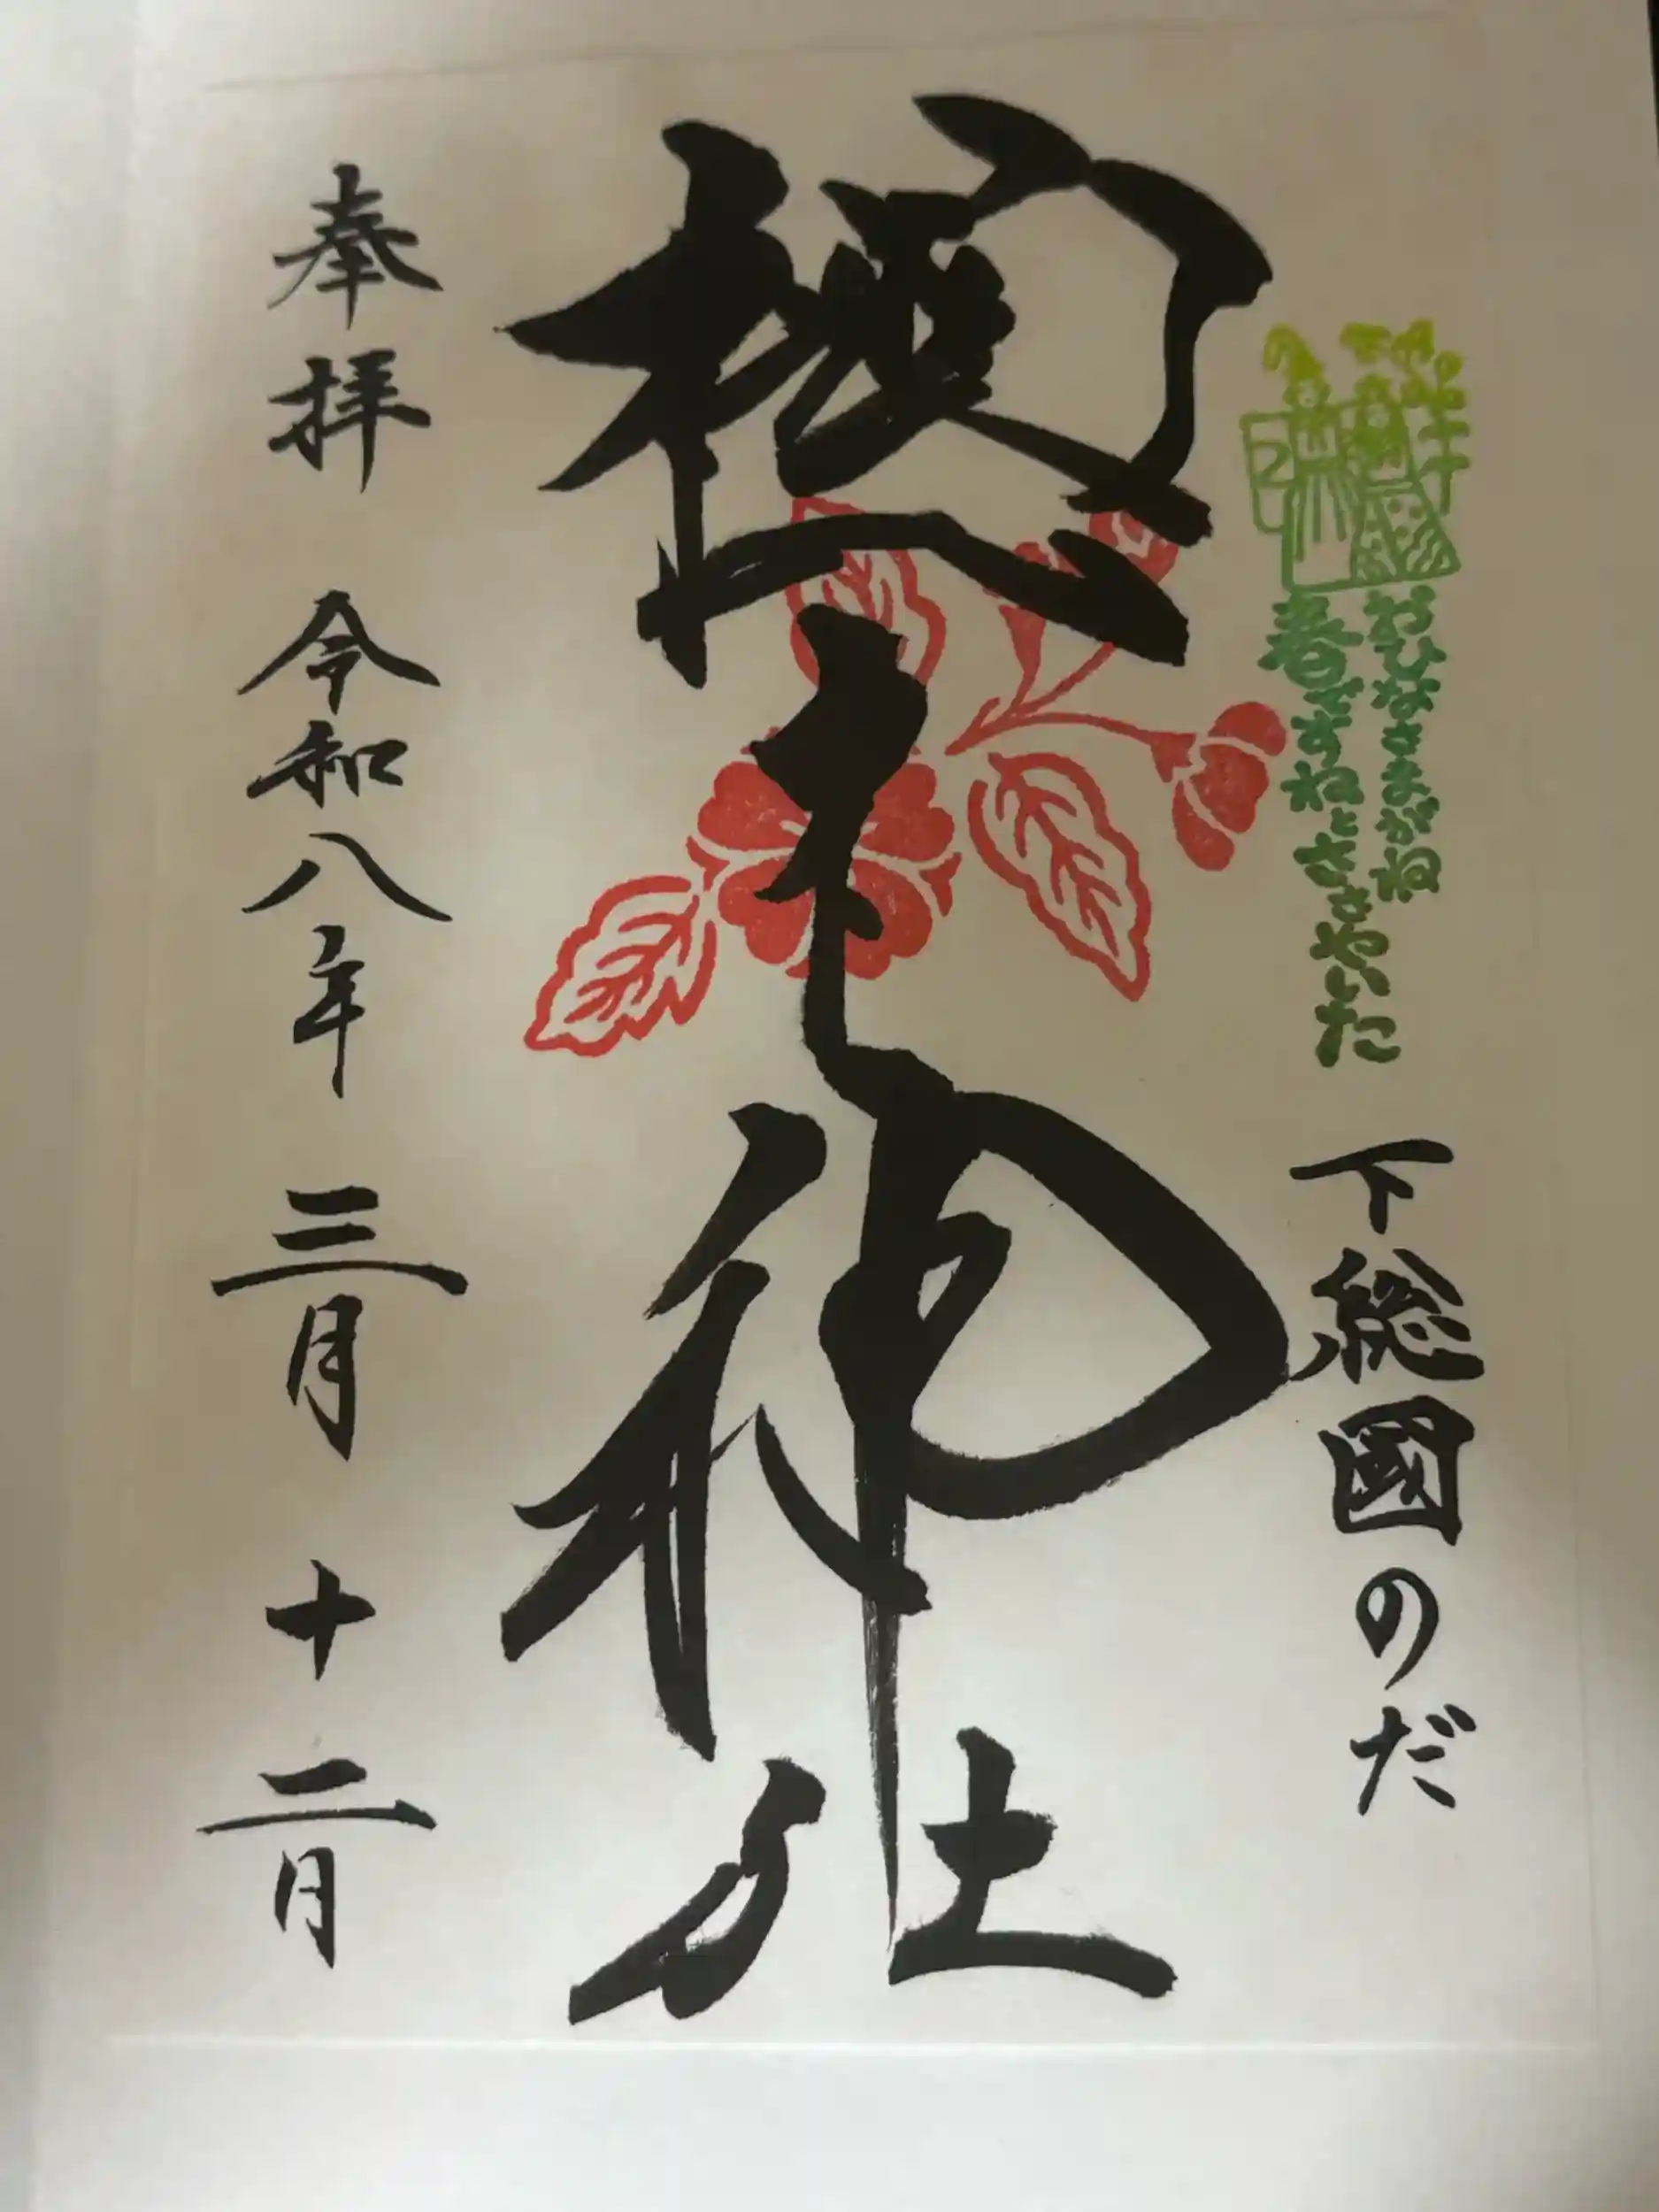 おひなさまがね
春ですねとささやいた
下総國のだ
櫻木神社
奉拝 令和八年 三月 十二日